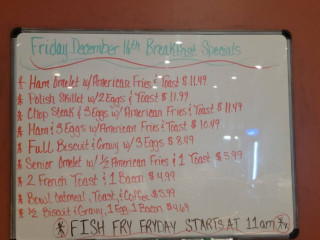 Friday December 16th Breakfast Specials
Ham Omelet w/American Fries & Toast $11.49
Polish Skillet w/2 Eggs & Toast $11.99
Chop Steak & 3 Eggs w/American Fries & Toast $11.49
Ham & 3 Eggs w/American Fries & Toast $10.49
Full Biscuit & Gravy w/3 Eggs $8.49
Senior Omelet w/ ½ American Fries & 1 Toast $5.99
2 French Toast & 1 Bacon $4.99
Bowl Oatmeal, Toast, & Coffee $5.99
½ Biscuit & Gravy, 1 Egg, 1 Bacon $4.69
FISH FRY FRYDAY STARTS AT 11am